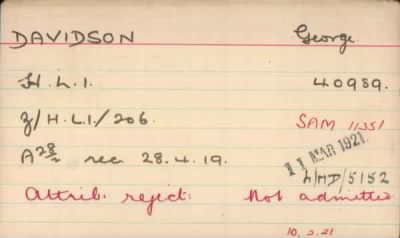 DAVIDSON George.
H.L.I. 40989.
Z/H.L.I./206. SAM 11351
A28 rec 28.4.19. 11 MAR 1921
4/MD/5152
Attrib. reject: Not admitted
10.2.21